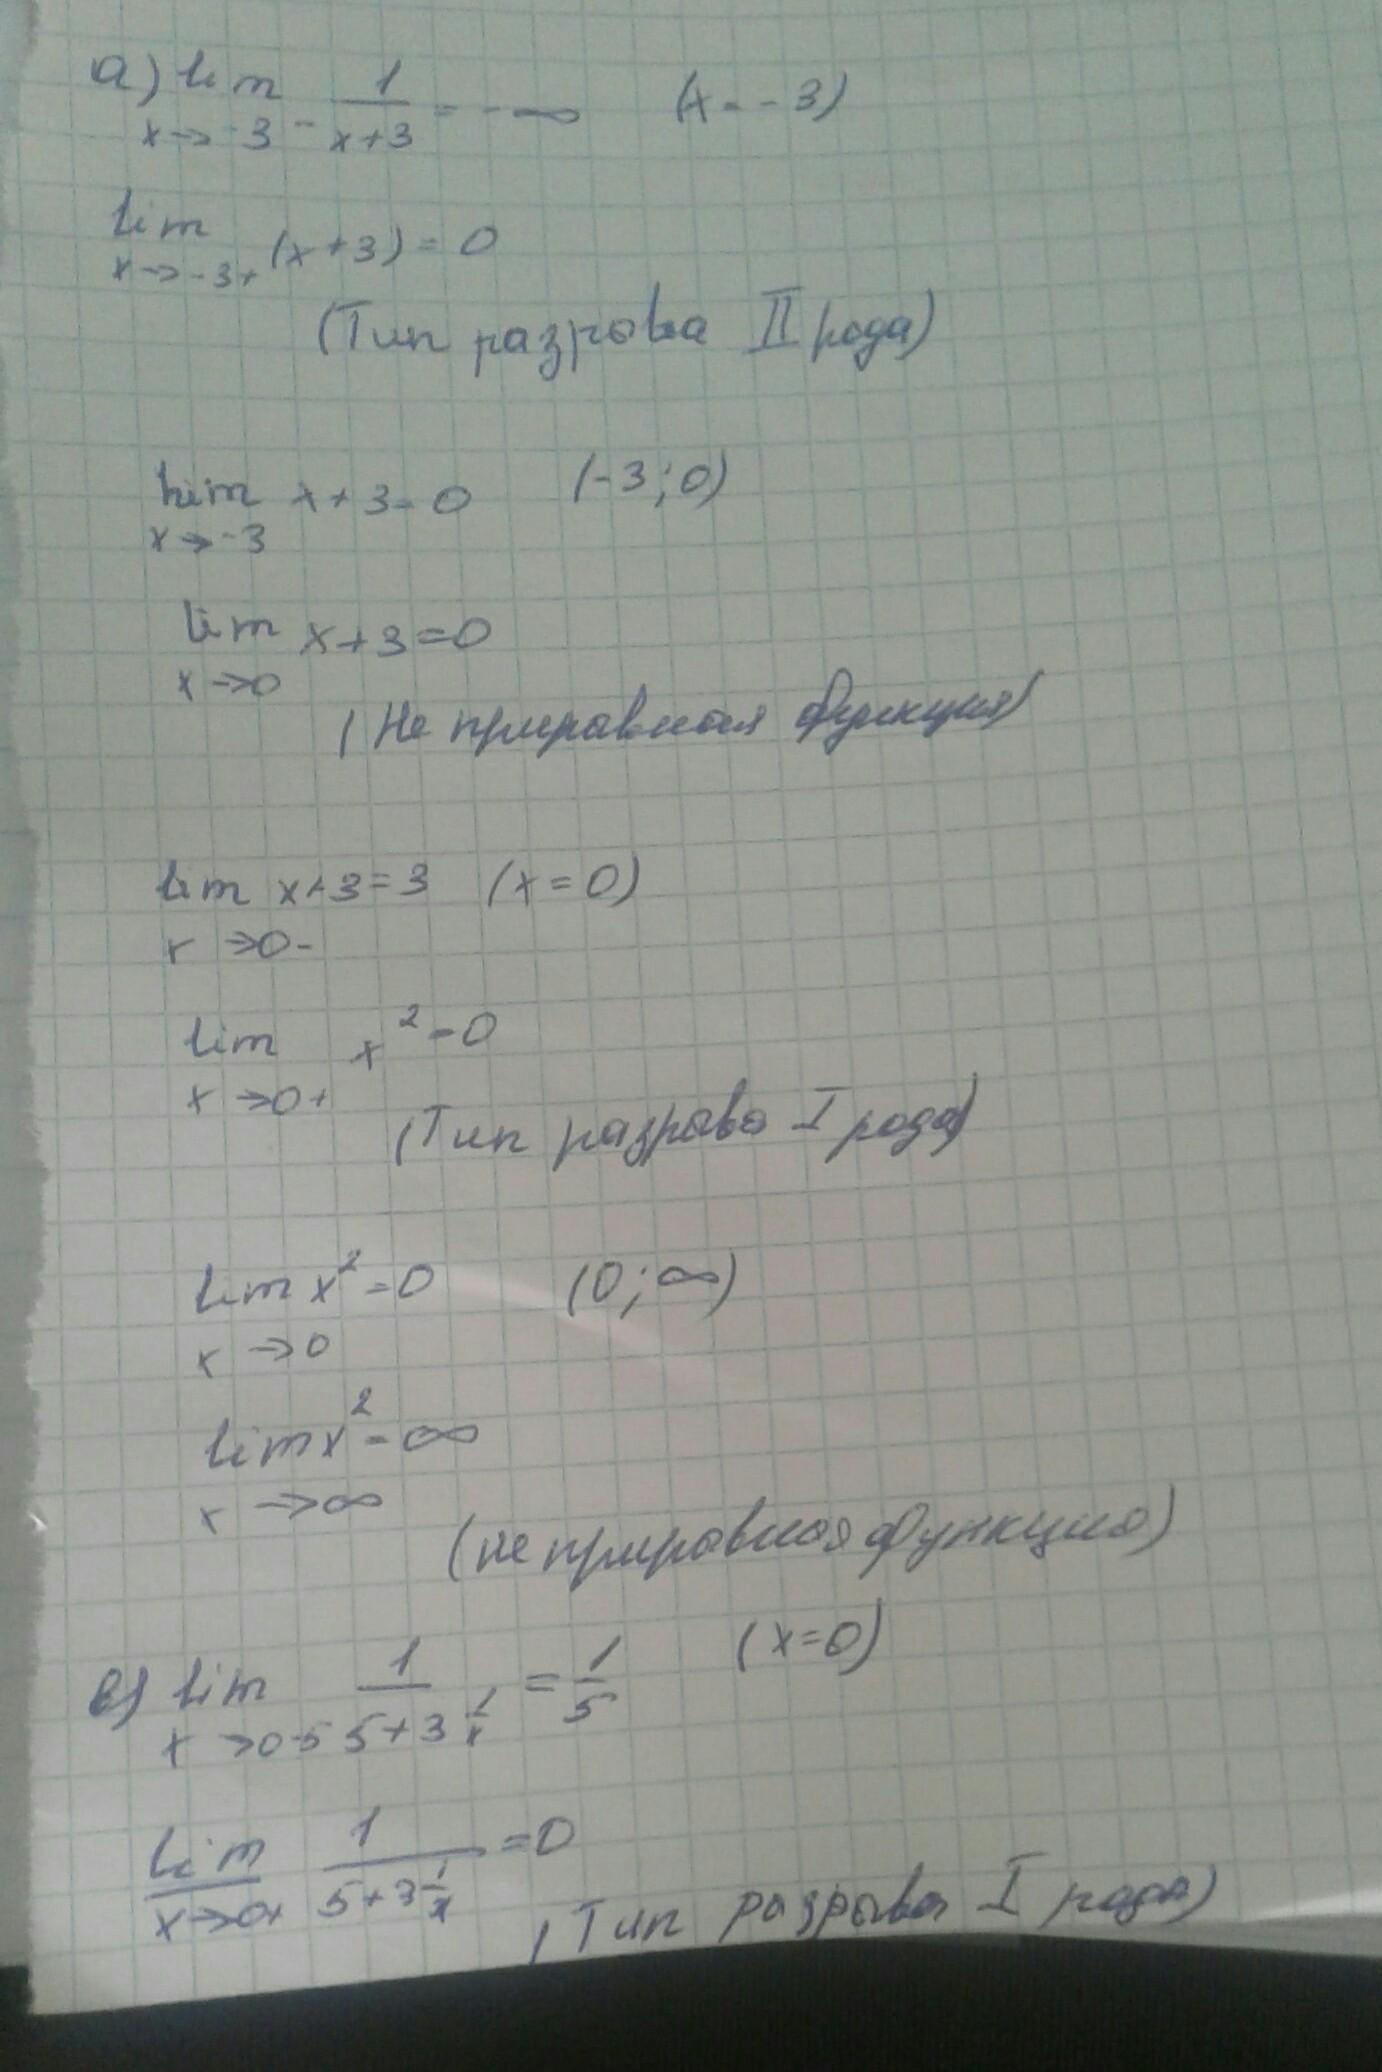 а) lim 1/(x+3) = -∞ (x = -3)
x→-3-
lim (x+3) = 0
x→-3+
(Тип разрыва II рода)
lim x+3=0 (-3;0)
x→-3
lim x+3=0
x→0
(Не прирывная функция)
lim x+3=3 (x=0)
x→0-
lim x²=0
x→0+
(Тип разрыва I рода)
lim x²=0 (0;∞)
x→0
lim x²=∞
x→∞
(не прирывная функция)
в) lim 1/(5+3^(1/x)) = 1/5 (x=0)
x→0-
lim 1/(5+3^(1/x)) =0
x→0+
(Тип разрыва I рода)